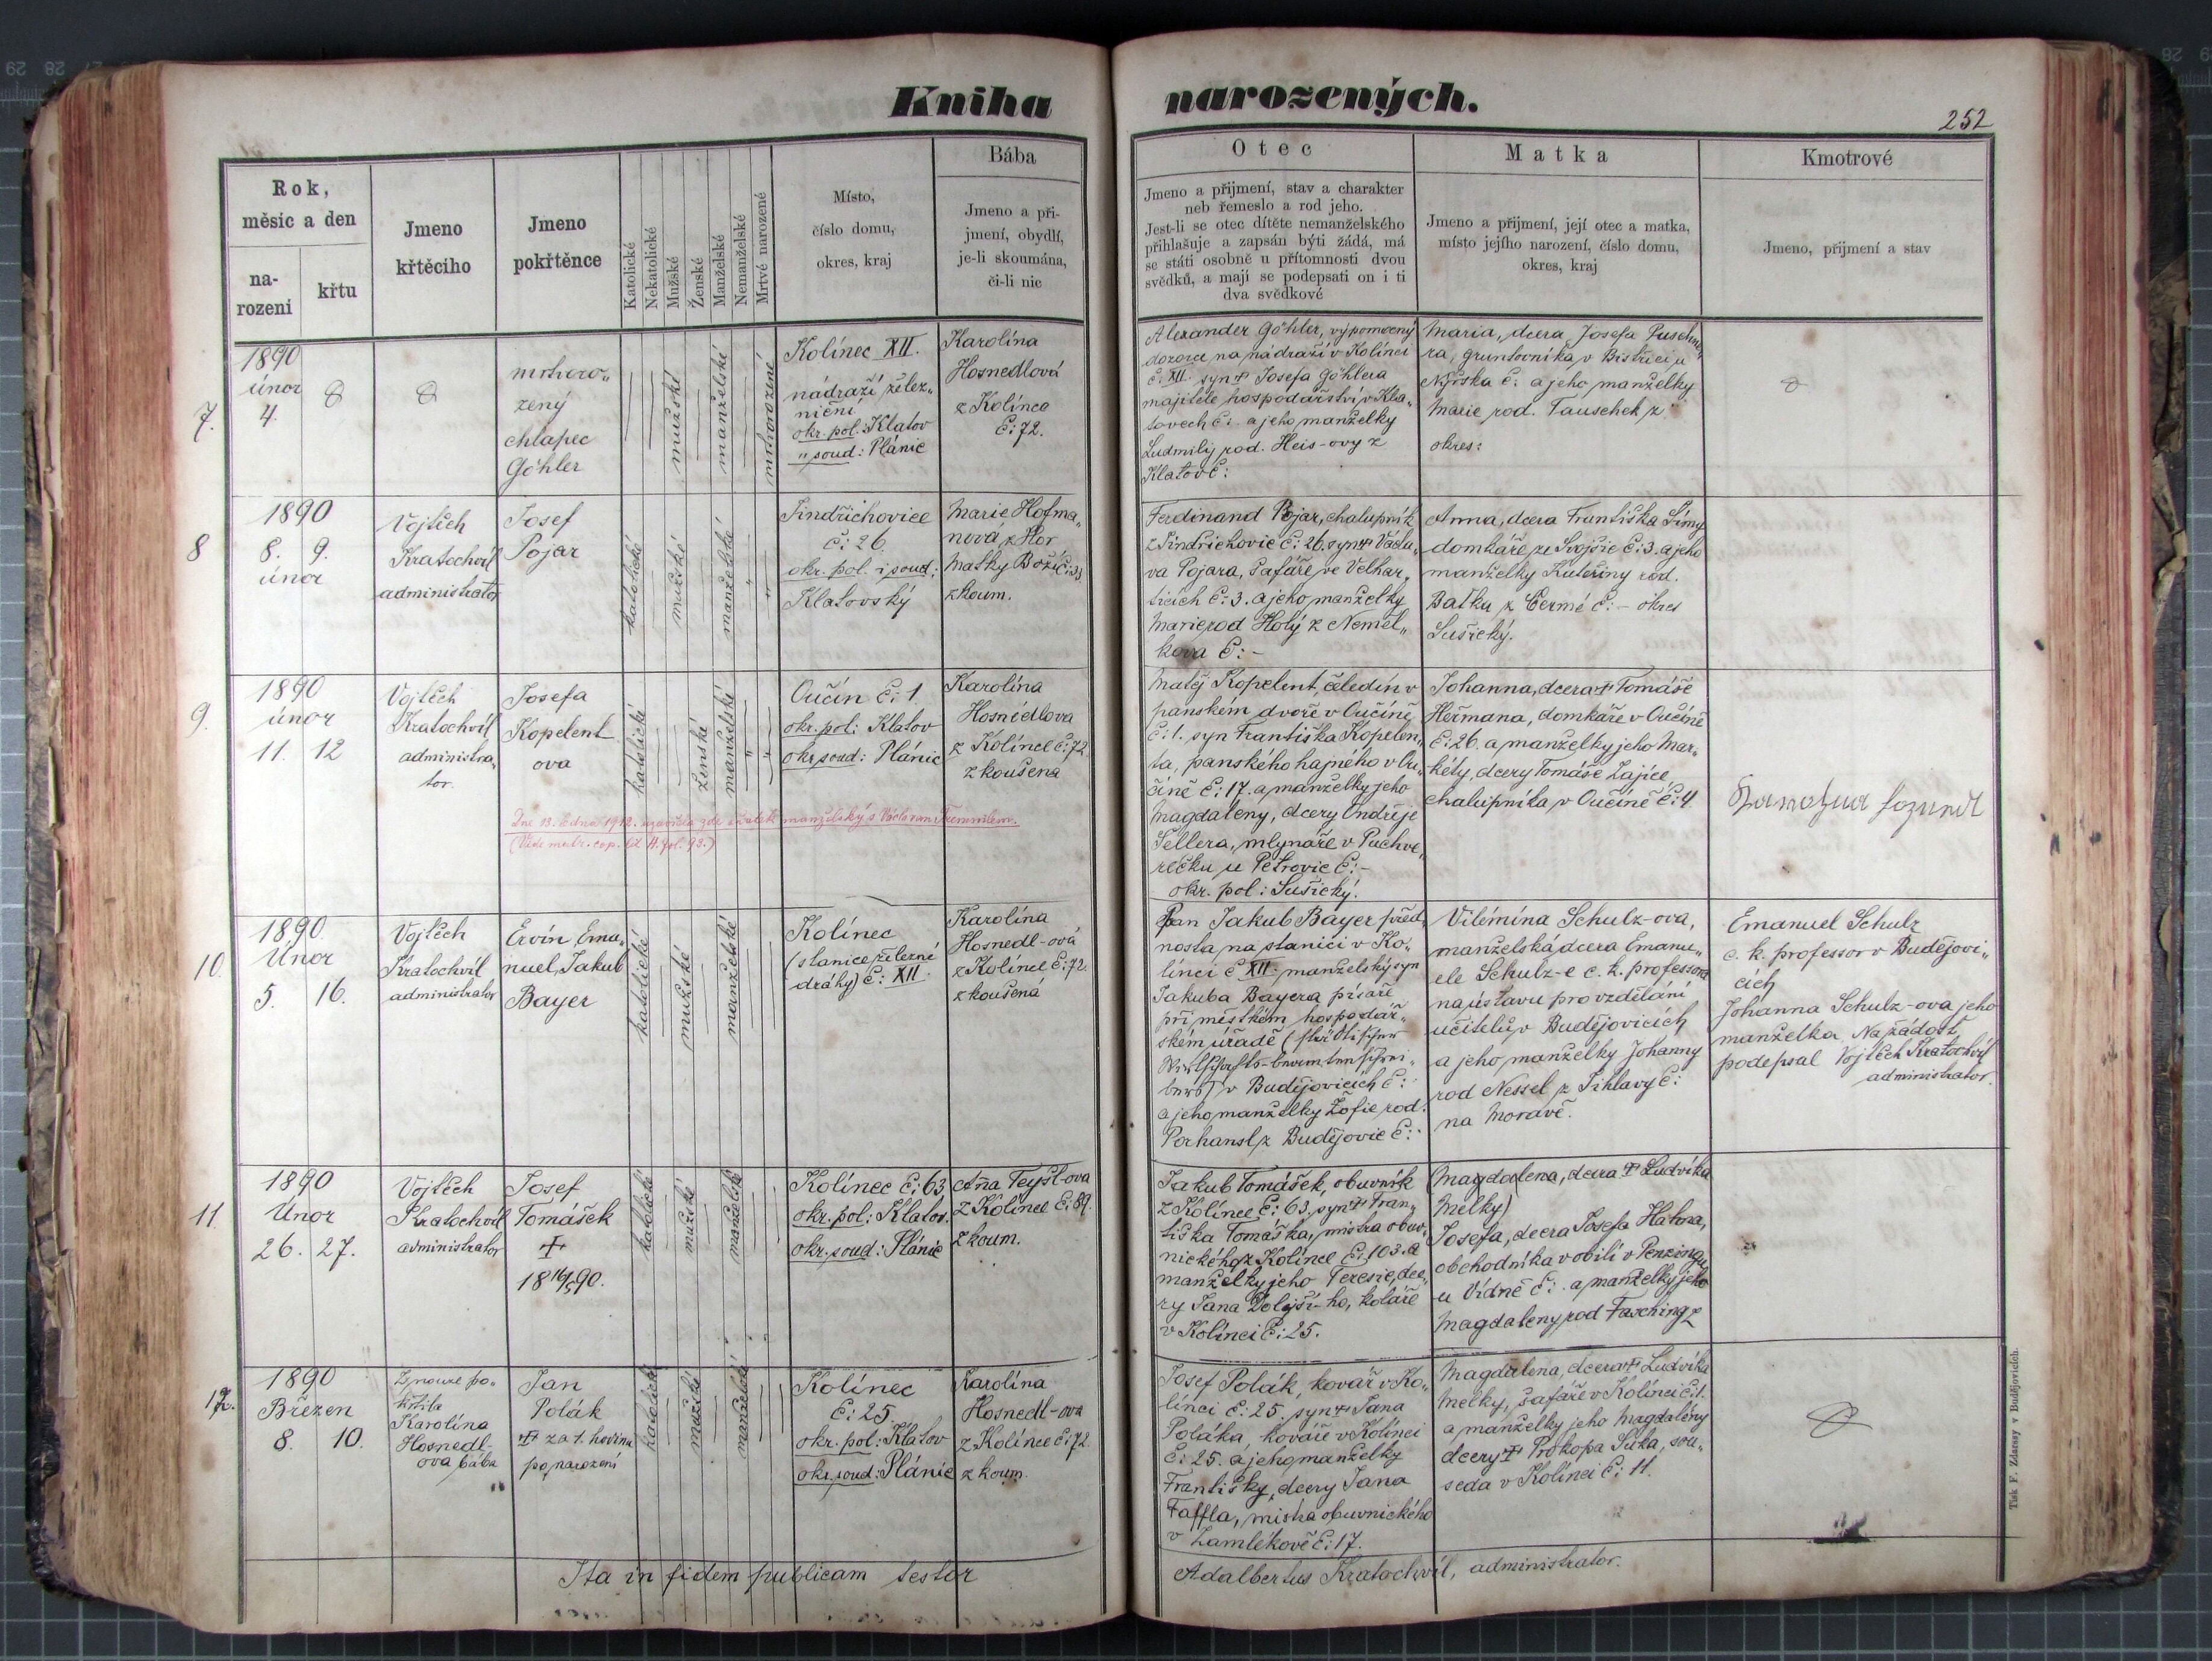 Kniha narozených.
252
Rok,
měsíc a den
na-
rození
křtu
Jmeno
křtěcího
Jmeno
pokřtěnce
Katolické
Nekatolické
Mužské
Ženské
Manželské
Nemanželské
Mrtvé narozené
Místo,
číslo domu,
okres, kraj
Bába
Jmeno a při-
jmení, obydlí,
je-li skoumána,
či-li nic
Otec
Jmeno a přijmení, stav a charakter
neb řemeslo a rod jeho.
Jest-li se otec dítěte nemanželského
přihlašuje a zapsán býti žádá, má
se státi osobně u přítomnosti dvou
svědků, a mají se podepsati on i ti
dva svědkové
Matka
Jmeno a přijmení, její otec a matka,
místo jejího narození, číslo domu,
okres, kraj
Kmotrové
Jmeno, přijmení a stav
7.
1890
únor
4.
mrtvero„
zený
chlapec
Göhler
mužské
manželské
mrtvorozené
Kolínec XII.
nádraží želez„
niční
okr. pol.: Klatov
„ soud: Plánic
Karolína
Hosnedlová
z Kolínce
č: 72.
Alexander Göhler, výpomocný
dozorce na nádraží v Kolínci
č: XII. syn † Josefa Göhlera
majitele hospodářství v Kla„
tovech č: a jeho manželky
Ludmily rod. Heis-ovy z
Klatov č:
Maria, dcera Josefa Puschne„
ra, gruntovníka v Bistřici u
Nýrska č: a jeho manželky
Marie rod. Tauschek z
okres:
8
1890
8. 9.
únor
Vojtěch
Kratochvíl
administrator
Josef
Pojar
katolické
mužské
manželské
Jindřichovice
č: 26
okr. pol. i soud:
Klatovský
Marie Hofma„
nová z Hor
Matky Boží č: 33
zkoum.
Ferdinand Pojar, chalupník
z Jindřichovic č: 26. syn † Václa„
va Pojara, šafáře ve Velhar„
ticích č: 3. a jeho manželky
Marie rod Holý z Neměl„
kova č: -
Anna, dcera Františka Šímy
domkáře ze Svojšic č: 3. a jeho
manželky Kateřiny rod.
Baťku z Čermé č: - okres
Sušický.
9.
1890
únor
11. 12
Vojtěch
Kratochvíl
administra„
tor.
Josefa
Kopelent
ova
katolické
ženské
manželské
Oučín č: 1
okr. pol: Klatov
okr. soud: Plánic
Karolína
Hosnedlova
z Kolínce č: 72
zkoušena
Matěj Kopelent, čeledín v
panském dvoře v Oučíně
č: 1. syn Františka Kopelen„
ta, panského hajného v Ou„
číně č: 17. a manželky jeho
Magdaleny, dcery Ondřeje
Sellera, mlynáře v Puchve„
řečku u Petrovic č: -
okr. pol: Sušický.
Johanna, dcera † Tomáše
Heřmana, domkáře v Oučíně
č: 26. a manželky jeho Mar„
kéty, dcery Tomáše Zajíce
chalupníka v Oučíně č: 4
Dne 13. ledna 1912. uzavřela zde sňatek manželský s Václavem
10.
1890.
Únor
5. 16.
Vojtěch
Kratochvíl
administrator
Ervín, Ema„
nuel, Jakub
Bayer
katolické
mužské
manželské
Kolínec
(stanice železné
dráhy) č: XII.
Karolína
Hosnedl-ová
z Kolínce č: 72.
zkoušená
Pan Jakub Bayer před„
nosta na stanici v Ko„
línci č XII manželský syn
Jakuba Bayera písaře
při městském hospodář„
ském úřadě
v Budějovicích č:
a jeho manželky Žofie rod.
Porhansl z Budějovic č:
Vilémína Schulz-ova,
manželská dcera Emanu„
ele Schulz-e c. k. professora
na ústavu pro vzdělání
učitelův Budějovicích
a jeho manželky Johanny
rod Nessel z Jihlavy č:
na Moravě.
Emanuel Schulz
c. k. professor v Budějovi„
cích
Johanna Schulz-ova jeho
manželka Na žádost
podepsal Vojtěch Kratochvíl
administrator.
11.
1890
Únor
26. 27.
Vojtěch
Kratochvíl
administrator
Josef
Tomášek
†
katolické
mužské
manželské
Kolínec č: 63
okr. pol: Klatov.
okr. soud: Plánic
Aňa Teyšl-ova
z Kolínce č: 89.
zkoum.
Jakub Tomášek, obuvník
z Kolínce č: 63, syn † Fran„
tiška Tomáška, mistra obuv„
nického z Kolínce č: 103. a
manželky jeho Terezie, dce„
ry Jana Dolejší-ho, koláře
v Kolínci č: 25.
(Magdalena, dcera † Ludvíka
Melky)
Josefa, dcera Josefa Hatona,
obchodníka v obilí v Penzingu
u Vídně č: a manželky jeho
Magdaleny rod Fasching z
12.
1890
Březen
8. 10.
Z nouze po„
křtila
Karolína
Hosnedl-
ova bába
Jan
Polák
† za 1. hodinu
po narození
katolické
mužské
manželské
Kolínec
č: 25
okr. pol: Klatov
okr. soud: Plánic
Karolína
Hosnedl-ova
z Kolínce č: 72.
zkoum.
Josef Polák, kovář v Ko„
línci č: 25 syn † Jana
Poláka, kováře v Kolínci
č: 25. a jeho manželky
Františky, dcery Jana
Faffla, mistra obuvnického
v Zamlékově č: 17.
Magdalena, dcera † Ludvíka
Melky, šafáře v Kolínci č: 1.
a manželky jeho Magdalény
dcery † Prokopa Suka, sou„
seda v Kolínci č: 11.
Ita in fidem publicam testor
Adalbertus Kratochvíl, administrator.
Tisk F. Zdarsy v Budějovicích.